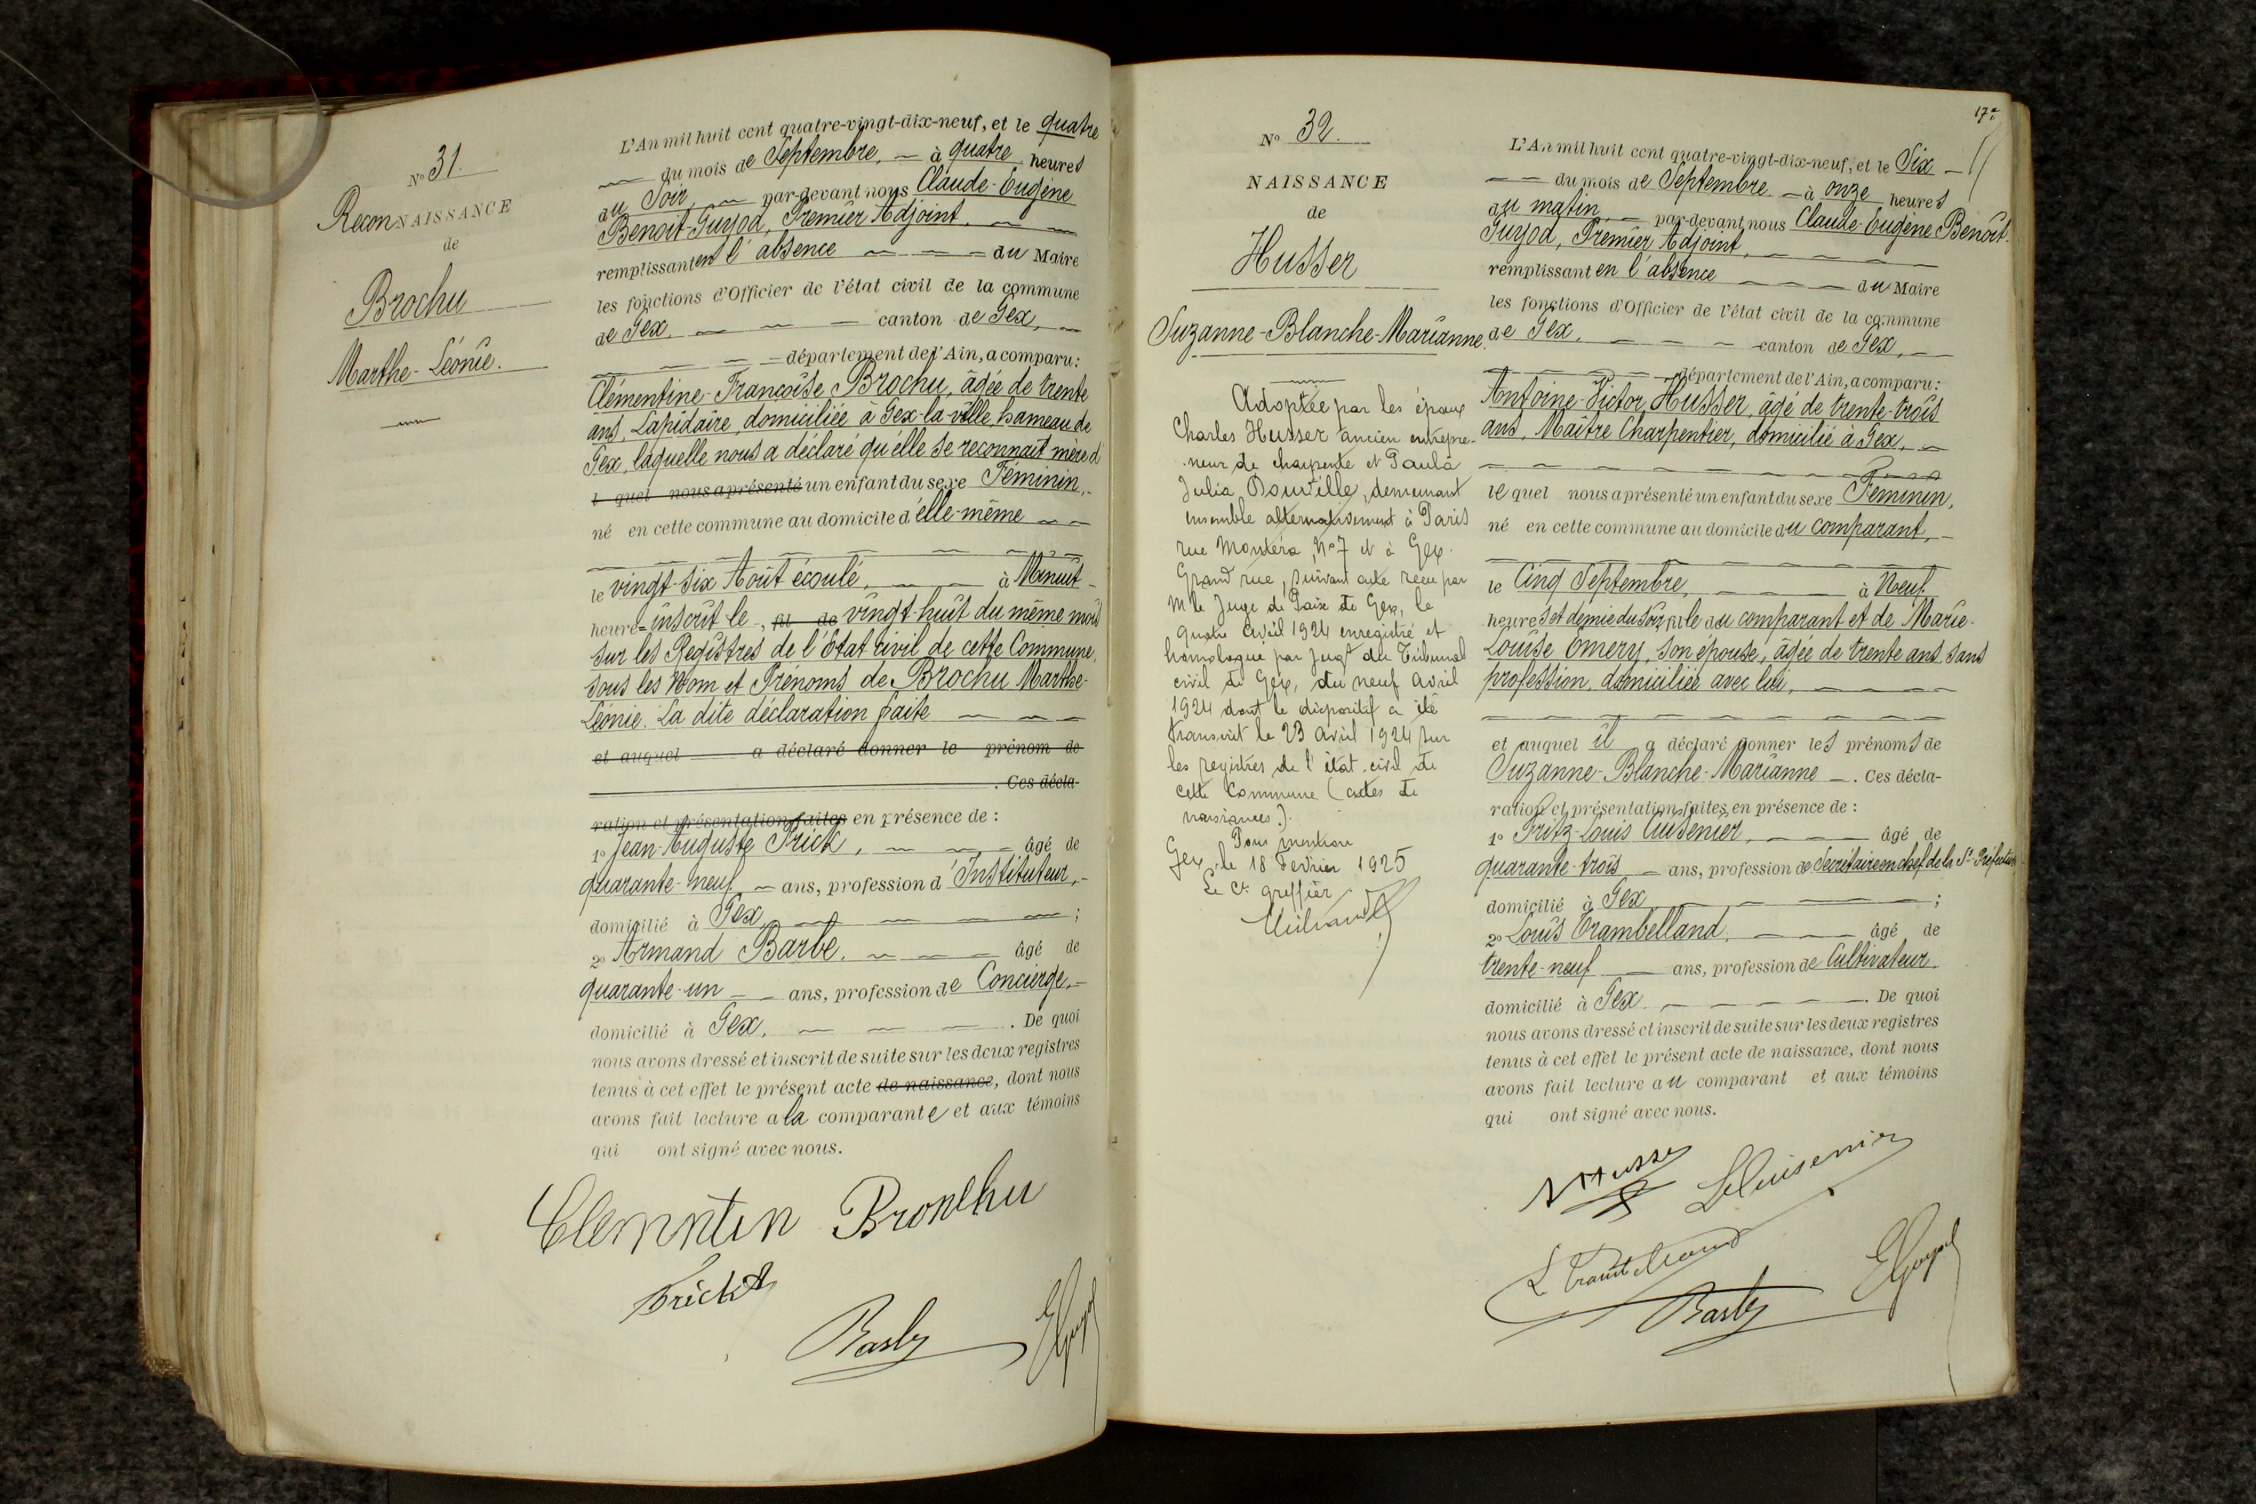 N° 31.
ReconNAISSANCE
de
Brochu
Marthe-Léonie.
L'An mil huit cent quatre-vingt-dix-neuf, et le quatre
du mois de Septembre, à quatre heures
du Soir, par-devant nous Claude-Eugène
Benoit-Guyod, Premier Adjoint,
remplissant en l'absence du Maire
les fonctions d'Officier de l'état civil de la commune
de Gex, canton de Gex,
département de l'Ain, a comparu:
Clémentine-Françoise Brochu, âgée de trente
ans, Lapidaire, domiciliée à Gex-la-ville hameau de
Gex, laquelle nous a déclaré qu'elle se reconnait mère d
l quel nous a présenté un enfant du sexe Féminin,
né en cette commune au domicile d'elle-même
le vingt-six Août écoulé, à Minuit
heure inscrit le, fil de vingt-huit du même mois
sur les Registres de l'Etat civil de cette Commune,
sous les Nom et Prénoms de Brochu Marthe-
Léonie. La dite déclaration faite
et auquel a déclaré donner le prénom de
. Ces décla-
ration et présentation faites en présence de :
1° Jean-Auguste Frick, âgé de
quarante-neuf ans, profession d'Instituteur,
domicilié à Gex ;
2° Armand Barbe, âgé de
quarante-un ans, profession de Concierge,
domicilié à Gex. De quoi
nous avons dressé et inscrit de suite sur les deux registres
tenus à cet effet le présent acte de naissance, dont nous
avons fait lecture a la comparante et aux témoins
qui ont signé avec nous.
Clemntin Bronchu
Frick A
Barbe
EGuyod
17e
N° 32.
NAISSANCE
de
Husser
Suzanne-Blanche-Marianne.
Adoptée par les époux
Charles Husser ancien entrepre-
neur de charpente et Paula
Julia Bouville, demeurant
ensemble alternativement à Paris
rue Montéra, N° 7 et à Gex
Grand'rue, suivant acte reçu par
M le Juge de Paix de Gex, le
quatre avril 1924 enregistré et
homologué par jugt du Tribunal
civil de Gex, du neuf avril
1924 dont le dispositif a été
transcrit le 23 avril 1924 sur
les registres de l'état civil de
cette Commune (actes de
naissances).
Pour mention
Gex, le 18 Février 1925
Le Cs greffier
L'An mil huit cent quatre-vingt-dix-neuf, et le Six
du mois de Septembre à onze heures
du matin, par-devant nous Claude-Eugène Benoît-
Guyod, Premier Adjoint,
remplissant en l'absence du Maire
les fonctions d'Officier de l'état civil de la commune
de Gex, canton de Gex,
département de l'Ain, a comparu:
Antoine-Victor Husser, âgé de trente-trois
ans, Maître Charpentier, domicilié à Gex,
lequel nous a présenté un enfant du sexe Féminin,
né en cette commune au domicile du comparant,
le Cinq Septembre, à Neuf
heures et demie du soir, fille du comparant et de Marie-
Louise Omery, son épouse, âgée de trente ans, sans
profession, domiciliée avec lui,
et auquel il a déclaré donner les prénoms de
Suzanne-Blanche-Marianne. Ces décla-
ration et présentation faites en présence de :
1° Fritz-Louis Cusenier, âgé de
quarante-trois ans, profession de Secrétaire en chef de la Ss-Préfecture
domicilié à Gex ;
2° Louis Crambelland, âgé de
trente-neuf ans, profession de Cultivateur
domicilié à Gex. De quoi
nous avons dressé et inscrit de suite sur les deux registres
tenus à cet effet le présent acte de naissance, dont nous
avons fait lecture au comparant et aux témoins
qui ont signé avec nous.
VHusser
LCusenier
Barbe
EGuyod